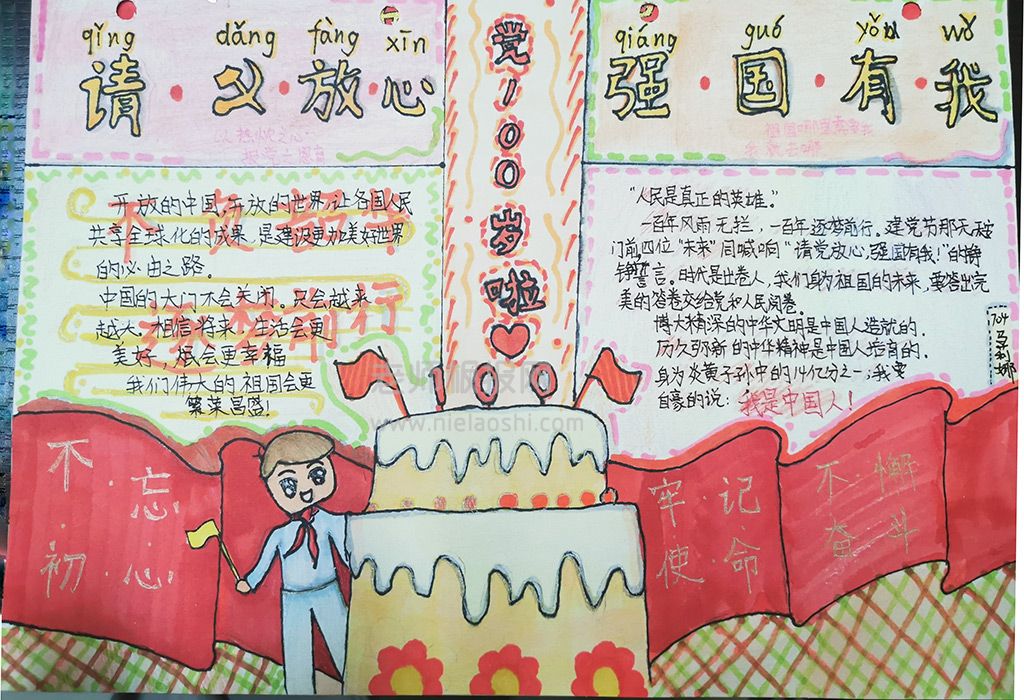 qǐng dǎng fàng xīn
请·党·放·心
qiáng guó yǒu wǒ
强·国·有·我
党100岁啦
开放的中国,开放的世界,让各国人民
共享全球化的成果 是建设更加美好世界
的必由之路。
中国的大门不会关闭。只会越来
越大。相信将来,生活会更
美好,烦会更幸福
我们伟大的祖国会更
繁荣昌盛!
“人民是真正的英雄。”
一百年风雨无拦,一百年逐梦前行。建党节那天天安
门前四位“未来”同喊响“请党放心,强国有我!”的铮
铮誓言。时代是出卷人,我们身为祖国的未来,要答出完
美的答卷交给党和人民阅卷。
博大精深的中华文明是中国人造就的.
历久弥新的中华精神是中国人培育的.
身为炎黄子孙中的14亿分之一;我要
自豪的说:我是中国人!
100
老师板报网
www.nielaoshi.com
不·忘
初·心
牢·记
使·命
不·懈
奋·斗